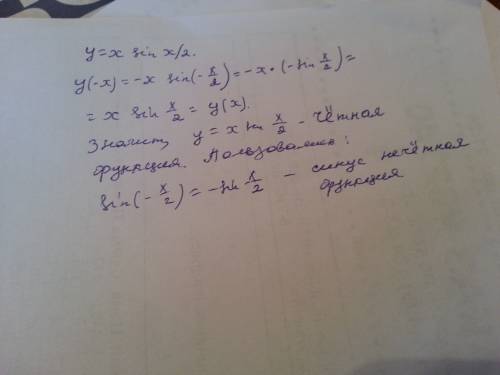 y = x sin x/2.
y(-x) = -x sin(-x/2) = -x • (-sin x/2) =
= x sin x/2 = y(x).
Значит, y = x sin x/2 - чётная
функция. Пользовались:
sin(-x/2) = -sin x/2 - синус нечётная
функция